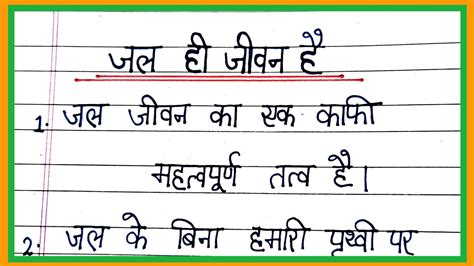 जल ही जीवन है
1. जल जीवन का एक काफी
महत्वपूर्ण तत्व है।
2. जल के बिना हमारी पृथ्वी पर